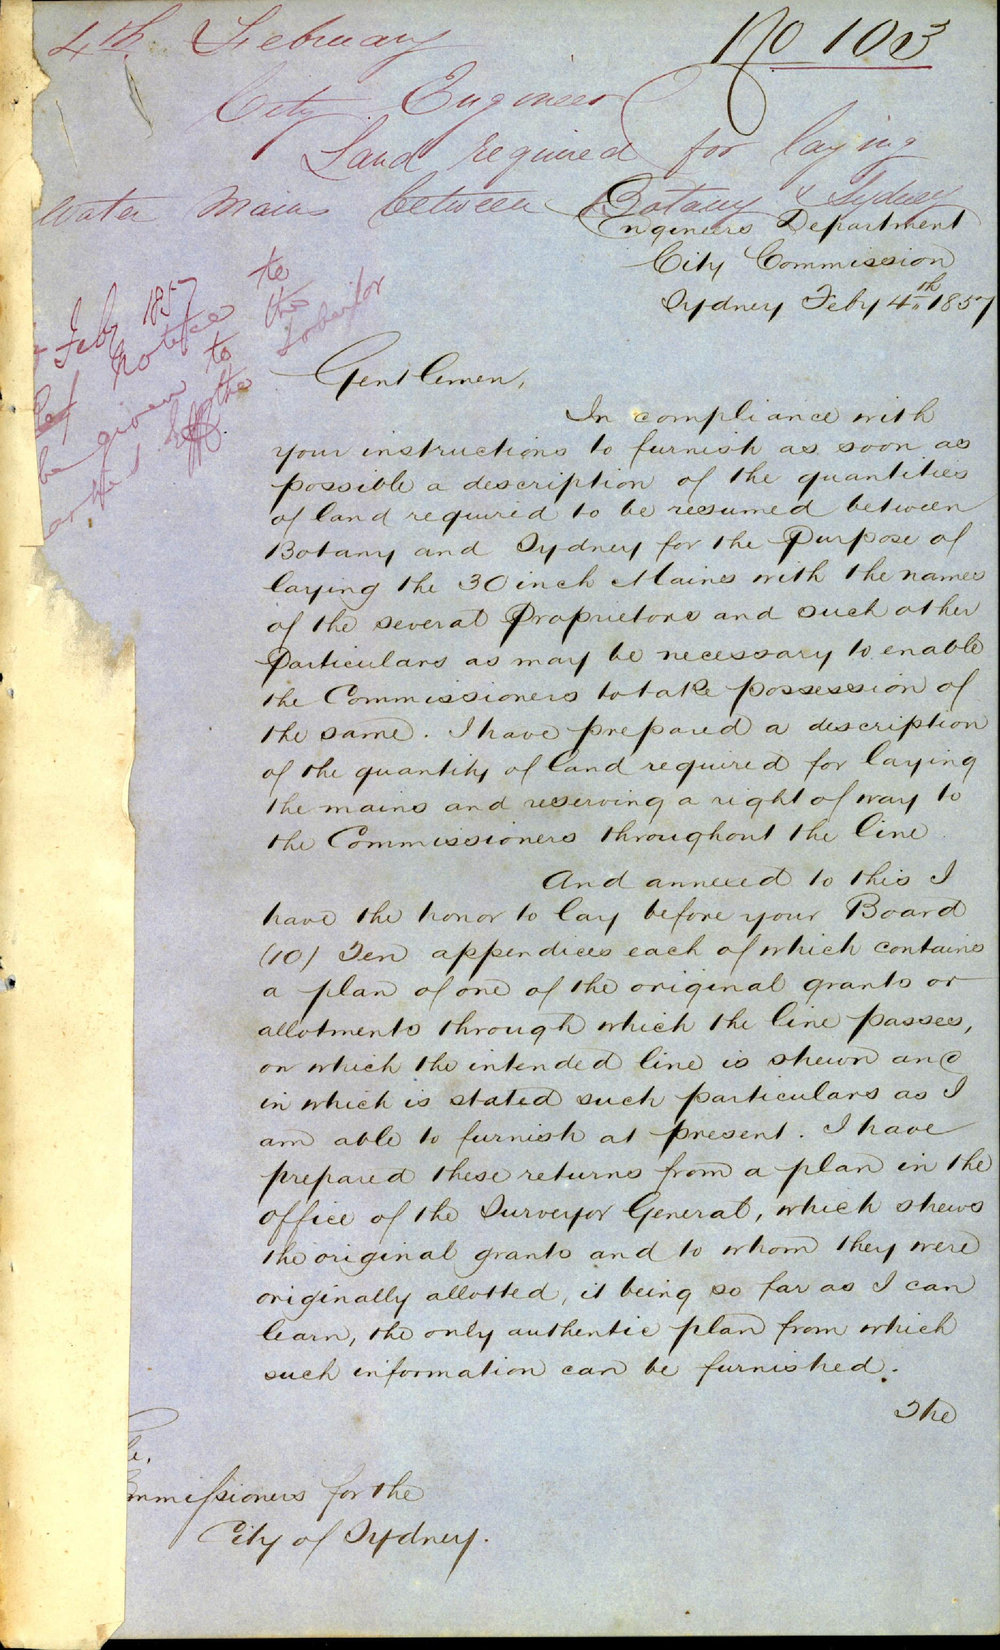 4th February
No 103
City Engineer
Land required for laying
water mains between Botany & Sydney
Engineers Department
City Commission
Sydney Feby 4th 1857
Feby 1857
Notice to
be given to the
Solicitor
Gentlemen,
In compliance with
your instructions to furnish as soon as
possible a description of the quantities
of land required to be resumed between
Botany and Sydney for the Purpose of
laying the 30 inch Mains with the names
of the several Proprietors and such other
Particulars as may be necessary to enable
the Commissioners to take possession of
the same. I have prepared a description
of the quantity of land required for laying
the mains and reserving a right of way to
the Commissioners throughout the line
And annexed to this I
have the honor to lay before your Board
(10) Ten appendices each of which contains
a plan of one of the original grants or
allotments through which the line passes,
on which the intended line is shewn and
in which is stated such particulars as I
am able to furnish at present. I have
prepared these returns from a plan in the
Office of the Surveyor General, which shews
the original grants and to whom they were
originally allotted, it being so far as I can
learn, the only authentic plan from which
such information can be furnished.
The
mmissioners for the
City of Sydney.